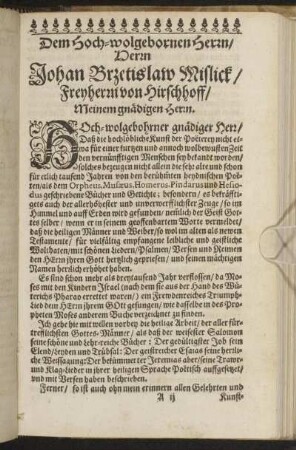 Dem Hoch-wolgebornen Herrn/
Herrn
Johan Brzetislaw Mislick/
Freyherrn von Hirschhoff/
Meinem gnädigen Herrn.
HOch-wolgebohrner gnädiger Herr/
Daß die hochlöbliche Kunst der Poeterey nicht et-
wa für einer kurtzen und annoch wolbewusten Zeit
den vernünfftigen Menschen sey bekant worden/
solches bezeugen nicht allein die sehr alte und schon
für etlich tausend Jahren von den berühmten heydnischen Poe-
ten/als dem Orpheus, Musæus, Homerus, Pindarus und Helio-
dus geschriebene Bücher und Gedicht: besondern/ es bekräffti-
ges auch der allerhöhester und unverwerfflichster Zeuge/ so im
Himmel und auff Erden wird gefunden/ nemlich der Geist Got-
tes selber/ wenn er in seinem geoffenbartem Worte vermeldet/
daß die heiligen Männer und Weiber/so wol im alten als newen
Testamente/ für vielfältig empfangene leibliche und geistliche
Wolthaten/mit schönen Liedern/Psalmen/ Versen und Reimen
den HErrn ihren Gott hertzlich gepriesen/ und seinen mächtigen
Namen herrlich erhöhet haben.
Es sind schon mehr als dreytausend Jahr verflossen/ da Mo-
ses mit den Kindern Israel (nach dem sie aus der Hand des Wü-
terichs Pharao errettet waren/) ein Frewdenreiches Triumph-
Lied dem HErrn ihrem GOtt gesungen/ wie dasselbe in des Pro-
pheten Moses anderem Buche verzeichnet zu finden.
Ich gehe hie mit willen vorbey die heilige Arbeit/ der aller für-
trefflichsten Gottes-Männer/ als daß der weisester Salomon
seine schöne und lehr-reiche Bücher: Der gedültigster Job sein
Elend/ leyden und Trübsal: Der geistreicher Esaias seine herrli-
che Weissagung: Der bekümmerter Jeremias aber/seine Trawr-
und Klag-Lieder in ihrer heiligen Sprache Politisch auffgesetzet/
und mit Versen haben beschrieben.
Ferner/ so ist auch ohn mein erinnern allen Gelehrten und
A ij Kunst-